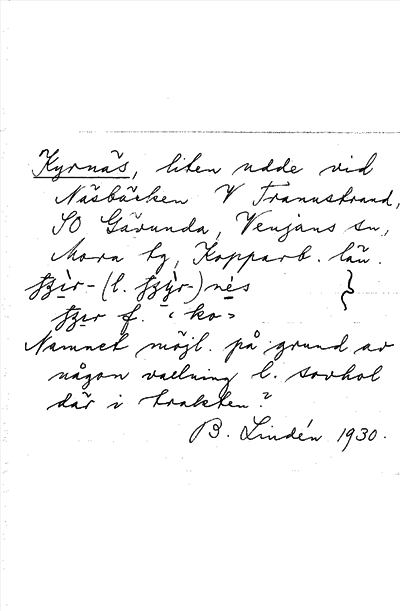 Kyrnäs, liten udde vid
Näsbäcken V Trannstrand,
SO Gävunda, Venjans sn,
Mora tg, Kopparb. län.
(l. nes
f. "ko"
Namnet möjl. på grund av
någon vallning l. sovhol
där i trakten?
B. Lindén 1930.